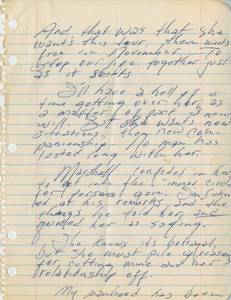 And that was that she
wants this tour, then wants
free in November. To
drop our life together just
as it starts
I'll have a hell of a
time getting over her as
a matter of fact I never
will. But she wants new
situations, then new com-
panionship. No man has
lasted long with her.
Marshall confided in her
to get into the inner circle
persons
ed at his remarks, and the
things he told her, and
quoted her as saying.
She knows its betrayal,
but she must pile up reasons
for cutting me and her
relationship off.
My manhood has been